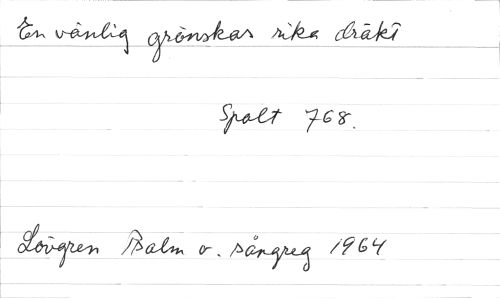 En vänlig grönskas rika dräkt
Spalt 768.
Lövgren Psalm o. sångreg 1964